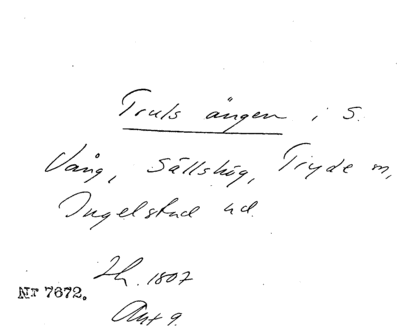 Truls ängen i S.
Vång, Sällshög, Tryde m,
Ingelstad hd.
Lh. 1807
Nr 7672.
Akt 9.